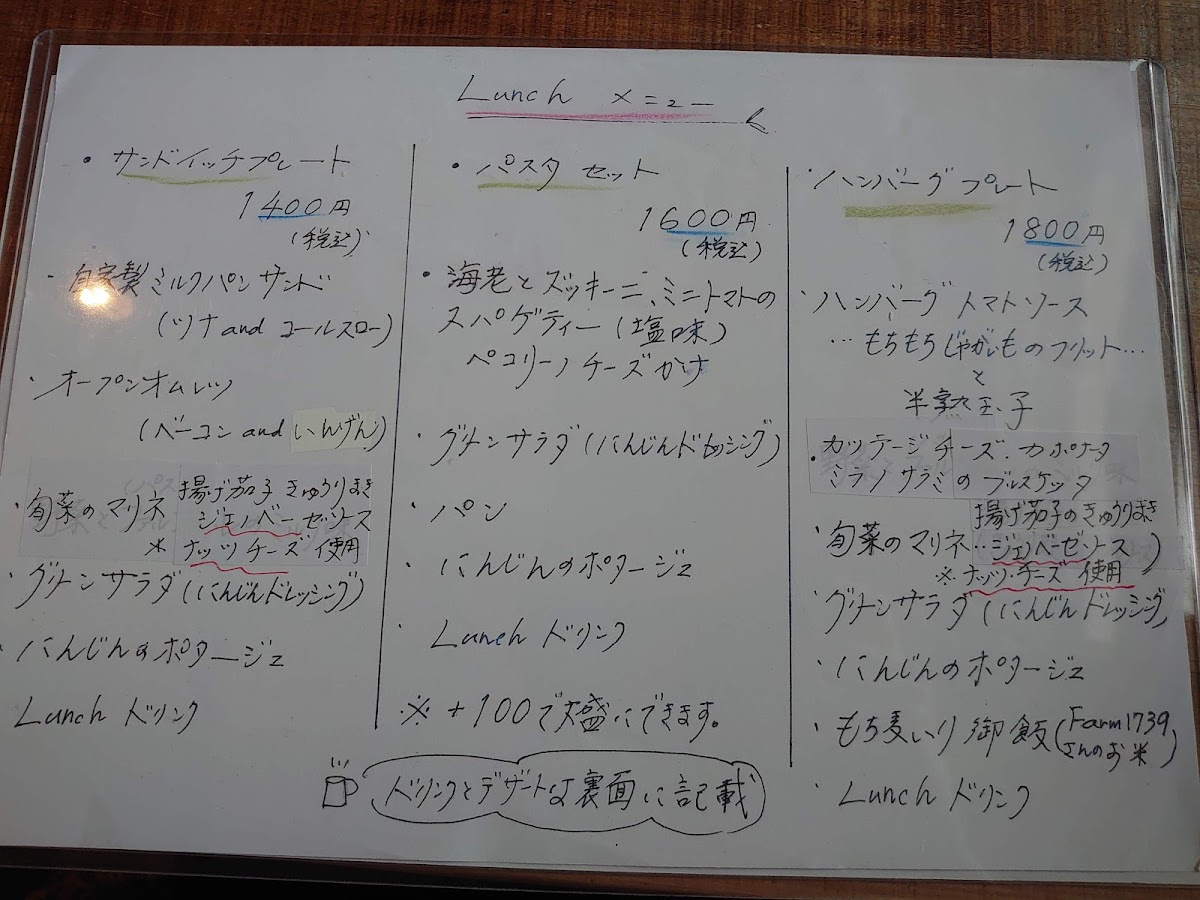 Lunch メニュー
・サンドイッチプレート
1400円
(税込)
・自家製ミルクパンサンド
(ツナ and コールスロー)
・オープンオムレツ
(ベーコン and いんげん)
・旬菜のマリネ 揚げ茄子きゅうりまき
ジェノベーゼソース
※ナッツチーズ使用
・グリーンサラダ(にんじんドレッシング)
・にんじんのポタージュ
Lunch ドリンク
・パスタセット
1600円
(税込)
・海老とズッキーニ、ミニトマトの
スパゲティー(塩味)
ペコリーノチーズかけ
・グリーンサラダ(にんじんドレッシング)
・パン
・にんじんのポタージュ
・Lunch ドリンク
※+100で大盛にできます。
・ハンバーグプレート
1800円
(税込)
・ハンバーグトマトソース
…もちもちじゃがいものフリット…
と
半熟玉子
・カッテージチーズ.カポナータ
ミラノサラミのブルスケッタ
・旬菜のマリネ‥揚げ茄子のきゅうりまき
ジェノベーゼソース)
※ナッツ・チーズ使用
・グリーンサラダ(にんじんドレッシング)
・にんじんのポタージュ
・もち麦いり御飯(Farm1739
さんのお米)
・Lunch ドリンク
ドリンクとデザートは裏面に記載